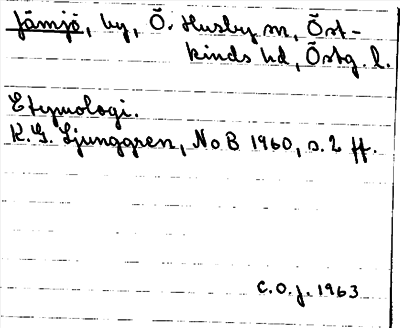 Jämjö, by, Ö. Husby sn, Öst-
kinds hd, Östg. l.
Etymologi.
K.G. Ljunggren, NoB 1960, s. 2 ff.
C.O.J. 1963